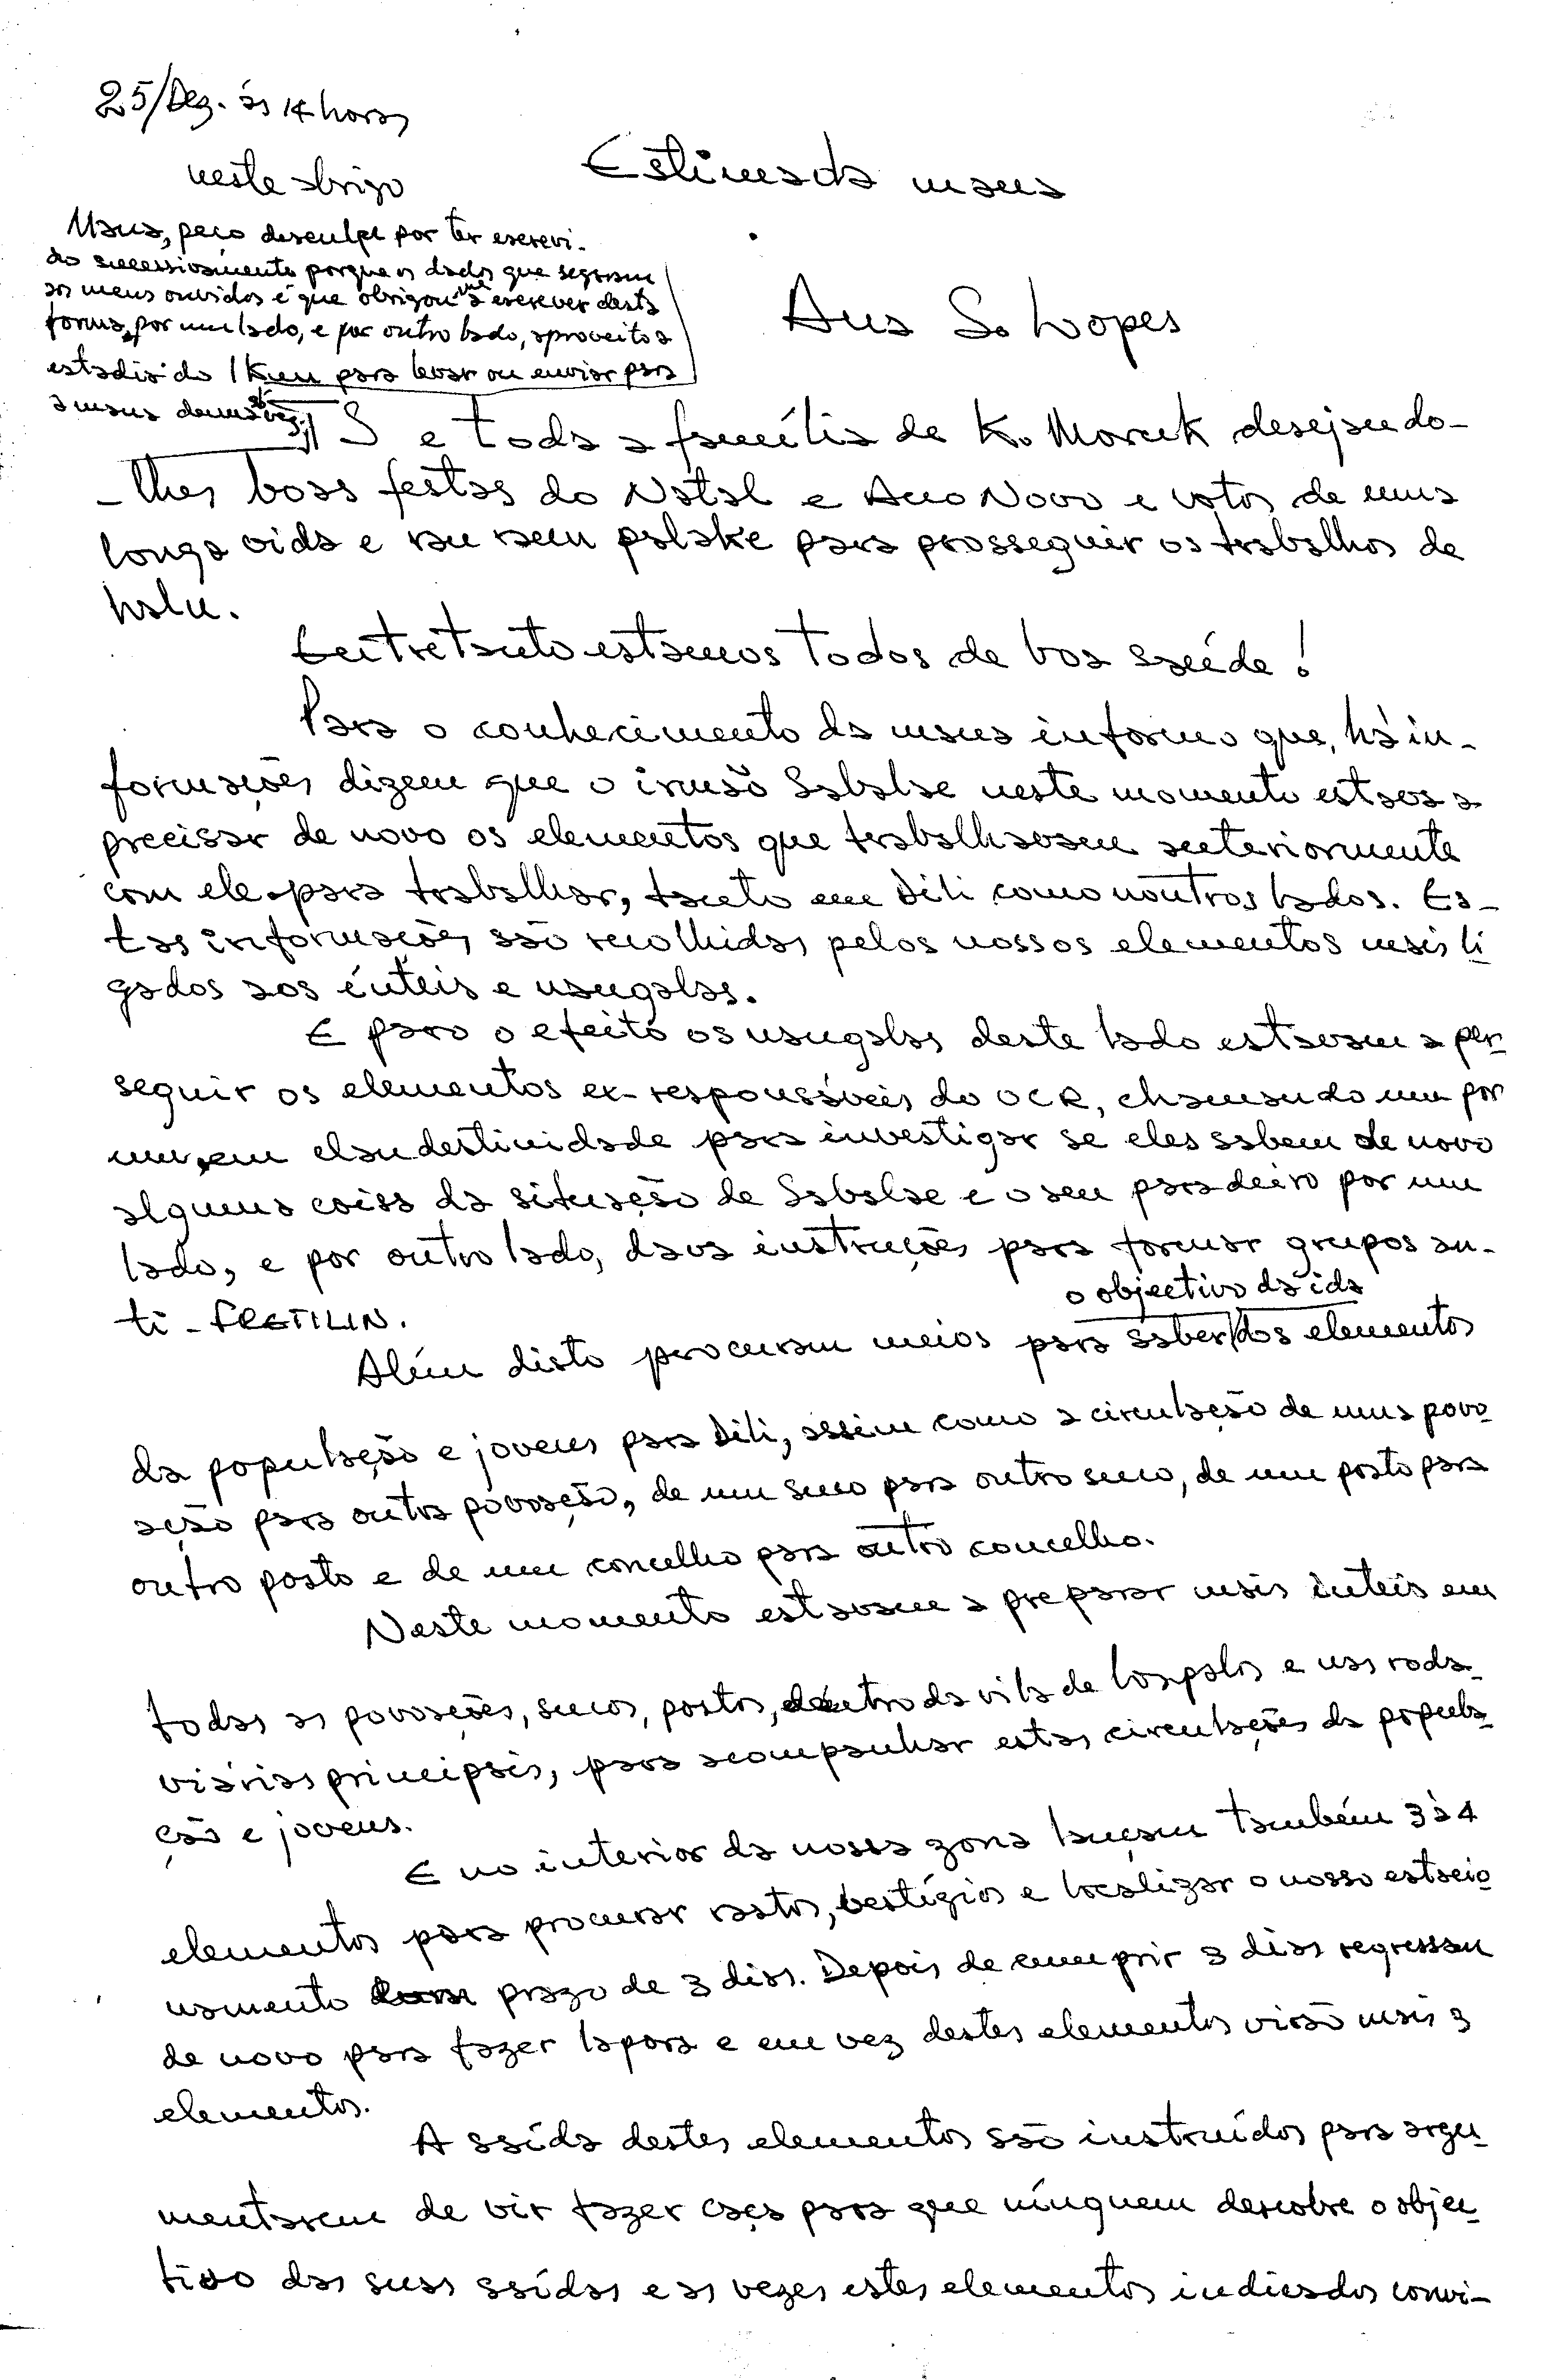 25/Dez. às 14 horas
neste abrigo
Estimada mana
Mana, peço desculpa por ter escrevi-
do sucessivamente porque os dados que segoram
aos meus ouvidos é que obrigou-me à escrever desta
forma, por um lado, e por outro lado, aproveito a
estadia do IKun para levar ou enviar para
a mana duma só vez.
Ana S. Lopes
S e toda a família de K. Moruk desejando-
-lhes boas festas do Natal e Ano Novo e votos de uma
longa vida e rau naun palake para prosseguir os trabalhos de
halu.
Entretanto estamos todos de boa saúde!
Para o conhecimento da mana informo que, há in-
formações dizem que o irmão Sabalae neste momento estava a
precisar de novo os elementos que trabalhavam anteriormente
com ele para trabalhar, tanto em Dili como noutros lados. Es-
tas informações são recolhidas pelos nossos elementos mais li
gados aos inteis e nanggalas.
E para o efeito os nanggalas deste lado estavam a per
seguir os elementos ex-responsáveis do OCR, chamando um por
um, em clandestinidade para investigar se eles sabem de novo
alguma coisa da situação de Sabalae e o seu paradeiro por um
lado, e por outro lado, dava instruções para formar grupos an-
ti-FRETILIN.
o objectivo da ida
Além disto procuram meios para saber/dos elementos
da população e jovens para Dili, assim como a circulação de uma povo
ação para outra povoação, de um suco para outro suco, de um posto para
outro posto e de um concelho para outro concelho.
Neste momento estavam a preparar mais inteis em
todas as povoações, sucos, postos, dentro da vila de Lospalos e nas roda
viárias principais, para acompanhar estas circulações da popula
ção e jovens.
E no interior da nossa zona lançam também 3 à 4
elementos para procurar rastos, vestígios e localizar o nosso estacio
namento prazo de 3 dias. Depois de cumprir 3 dias regressam
de novo para fazer lapora e em vez destes elementos virão mais 3
elementos.
A saída destes elementos são instruídos para argu
mentarem de vir fazer caça para que nínguem descobre o objec
tivo das suas saídas e as vezes estes elementos indicados convi-